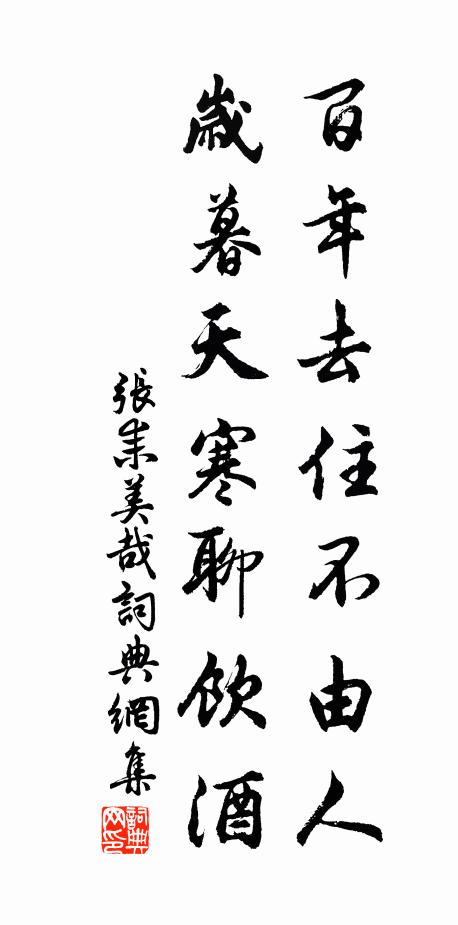 百年去住不由人
歲暮天寒聊飲酒
張耒美哉詞典網集
詞典网印